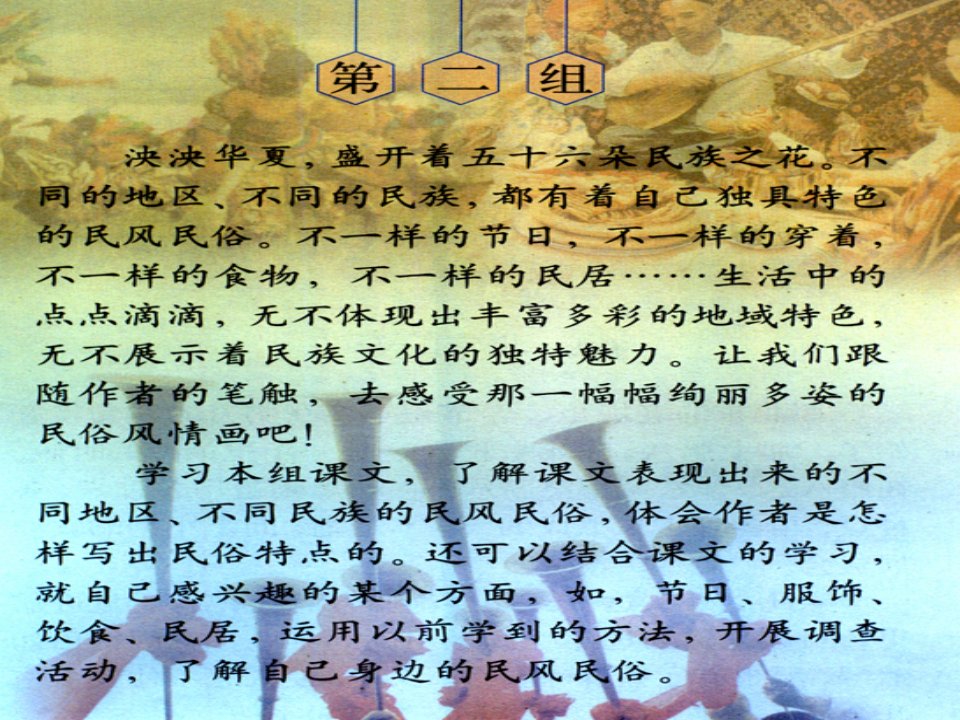 第二组
泱泱华夏，盛开着五十六朵民族之花。不
同的地区、不同的民族，都有着自己独具特色
的民风民俗。不一样的节日，不一样的穿着，
不一样的食物，不一样的民居……生活中的
点点滴滴，无不体现出丰富多彩的地域特色，
无不展示着民族文化的独特魅力。让我们跟
随作者的笔触，去感受那一幅幅绚丽多姿的
民俗风情画吧！
学习本组课文，了解课文表现出来的不
同地区、不同民族的民风民俗，体会作者是怎
样写出民俗特点的。还可以结合课文的学习，
就自己感兴趣的某个方面，如，节日、服饰、
饮食、民居，运用以前学到的方法，开展调查
活动，了解自己身边的民风民俗。